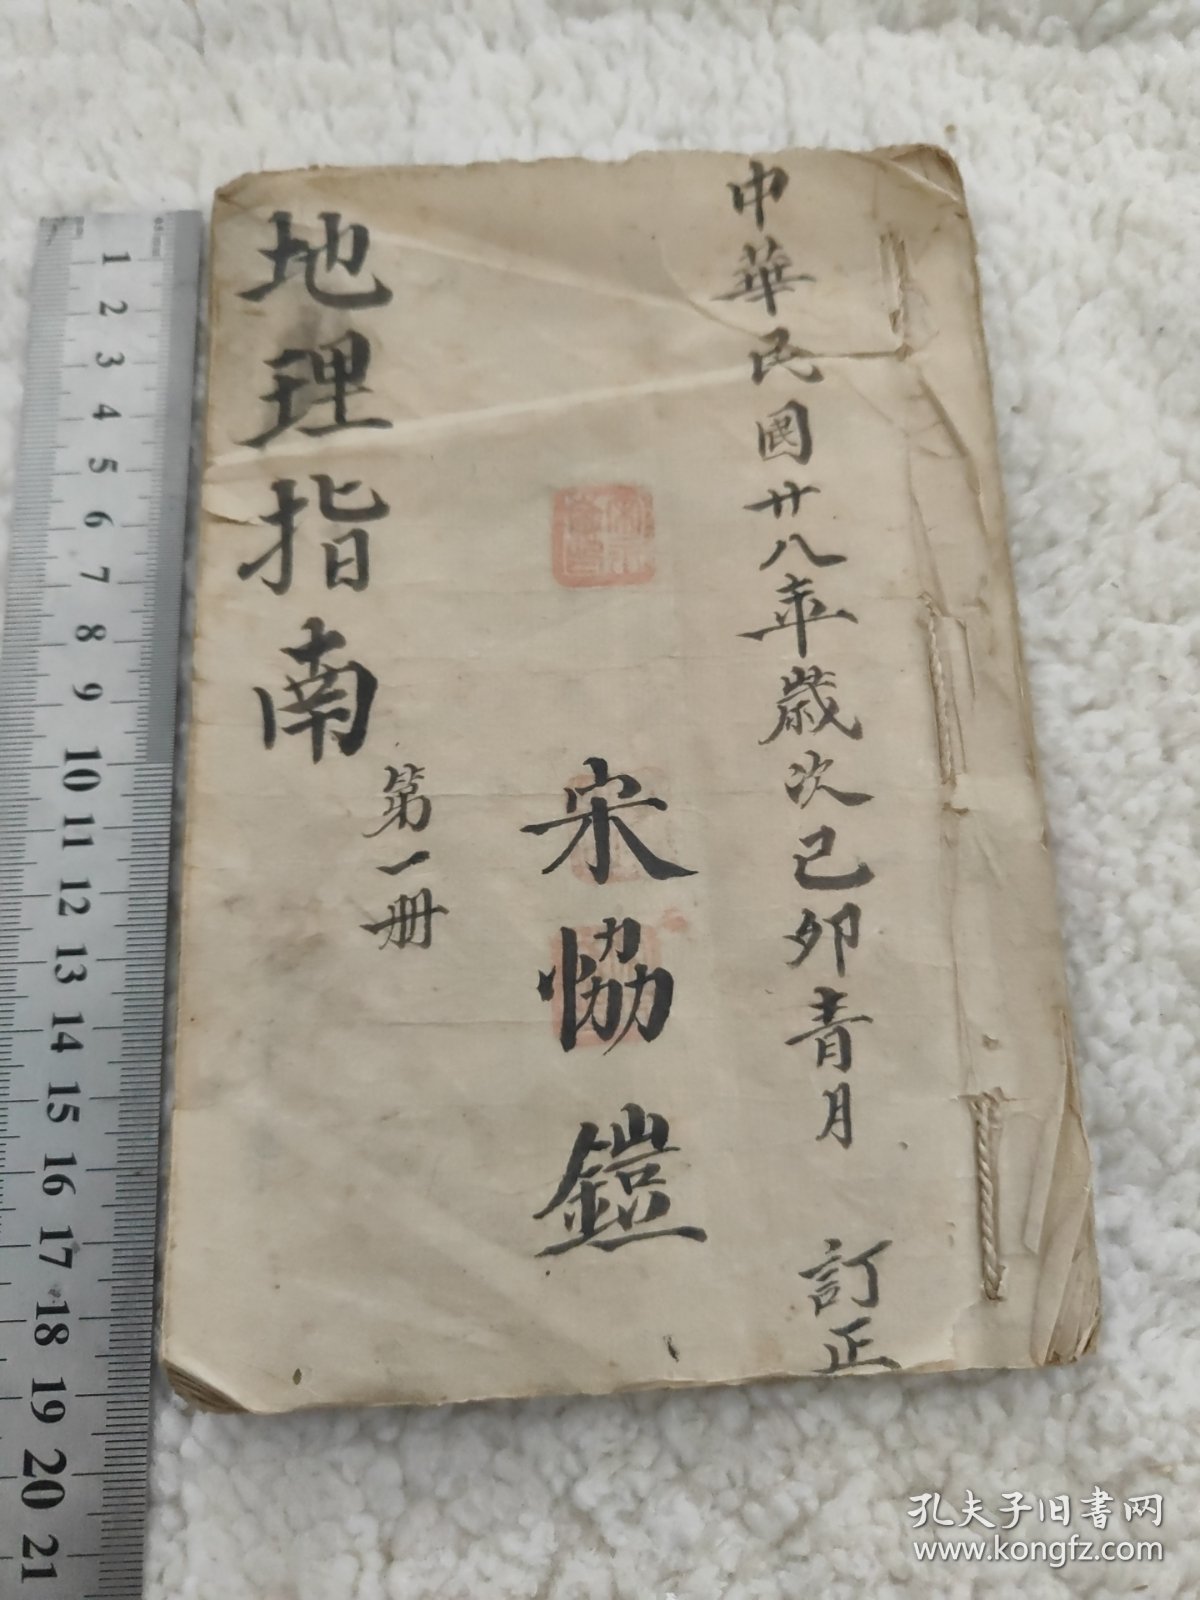 中華民國廿八年歲次己卯青月 訂正
宋恊鎧
地理指南
第一册
1 2 3 4 5 6 7 8 9 10 11 12 13 14 15 16 17 18 19 20 21
孔夫子旧書网
www.kongfz.com